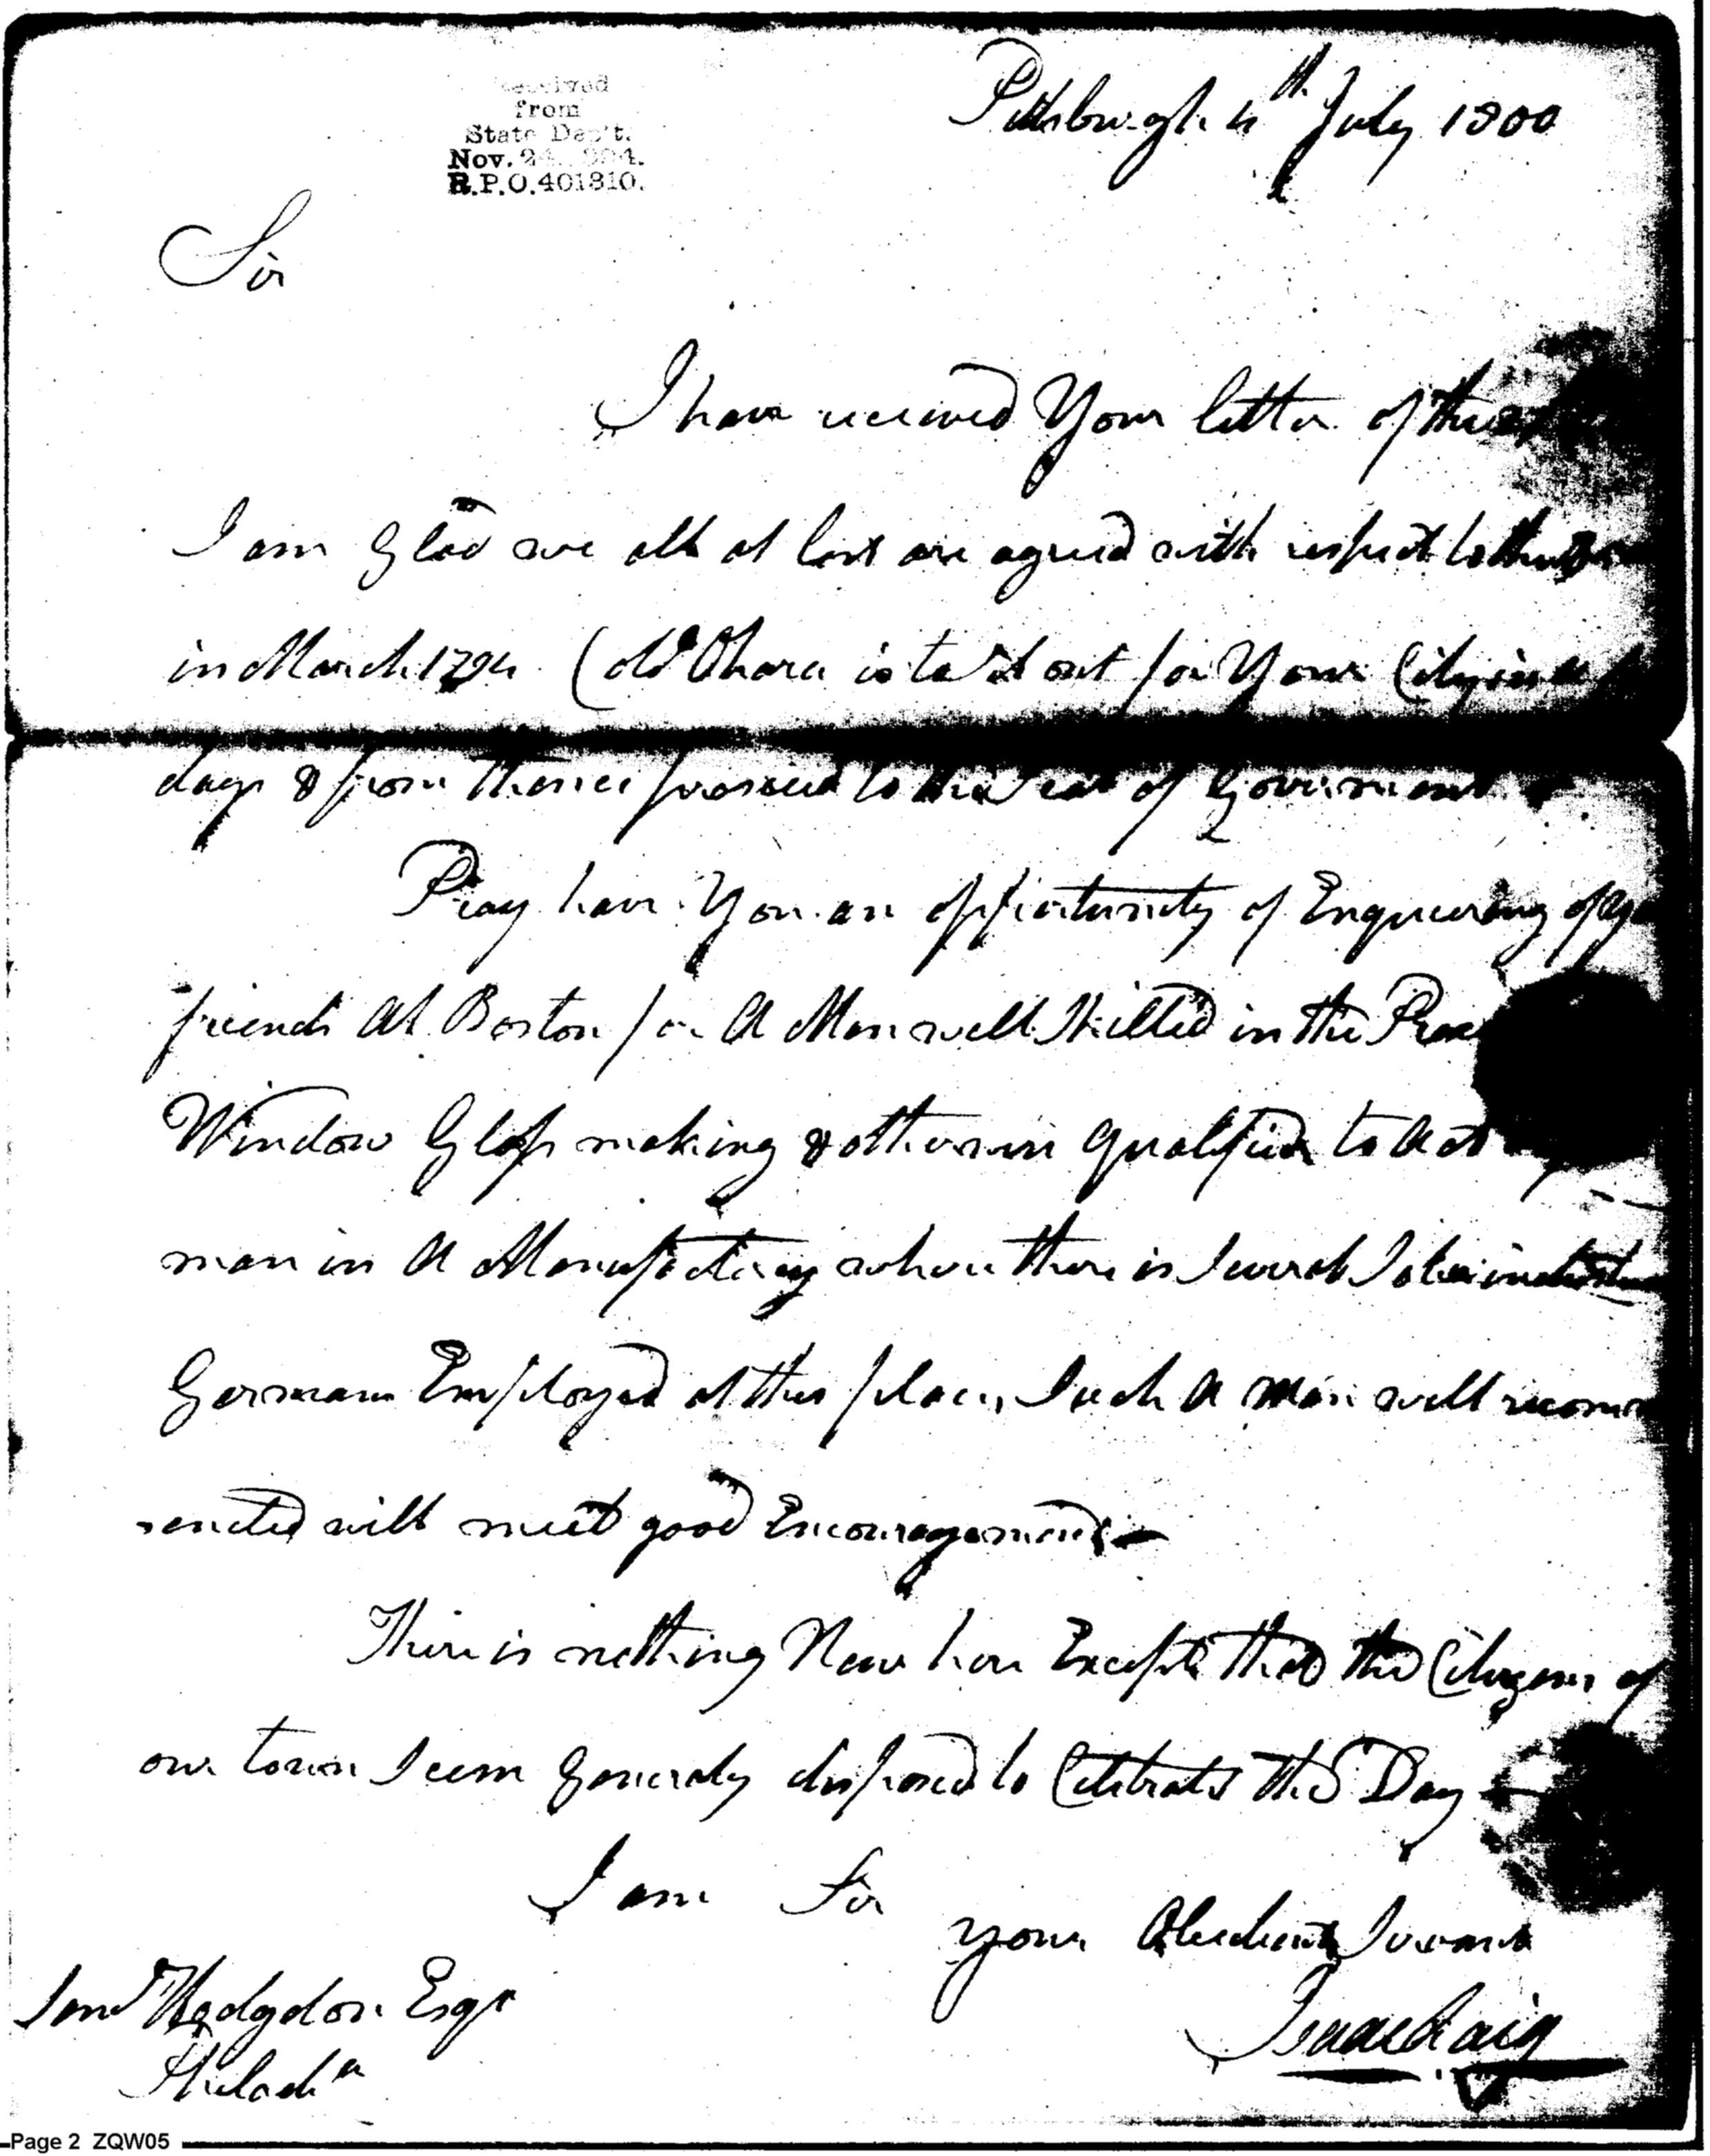 Received
from
State Dep't.
Nov. 24 1904.
R.P.O. 401810.
Pittsburgh 4th July 1800
Sir
I have received Your letter of the
I am Glad we all at last are agreed with respect to
in March 1794 Col. Ohara is to set out for Your City in a
days & from thence proceed to the Seat of Goverment
Pray have You an oppertunity of Enquireing of
friends At Boston for A Man well Skilled in the
Window Glass making & otherwise qualified to Act
man in A Manufactory where there is Several Sober
Germans Employed at this place, Such A Man well recom
mended will meet good Encouragement
There is nothing New here Except that the Citizens of
our town Seem Generaly disposed to Celebrate the Day
I am Sir
your Obedient Servant
Isaac Craig
Saml Hodgdon Esqr
Philada
Page 2 ZQW05